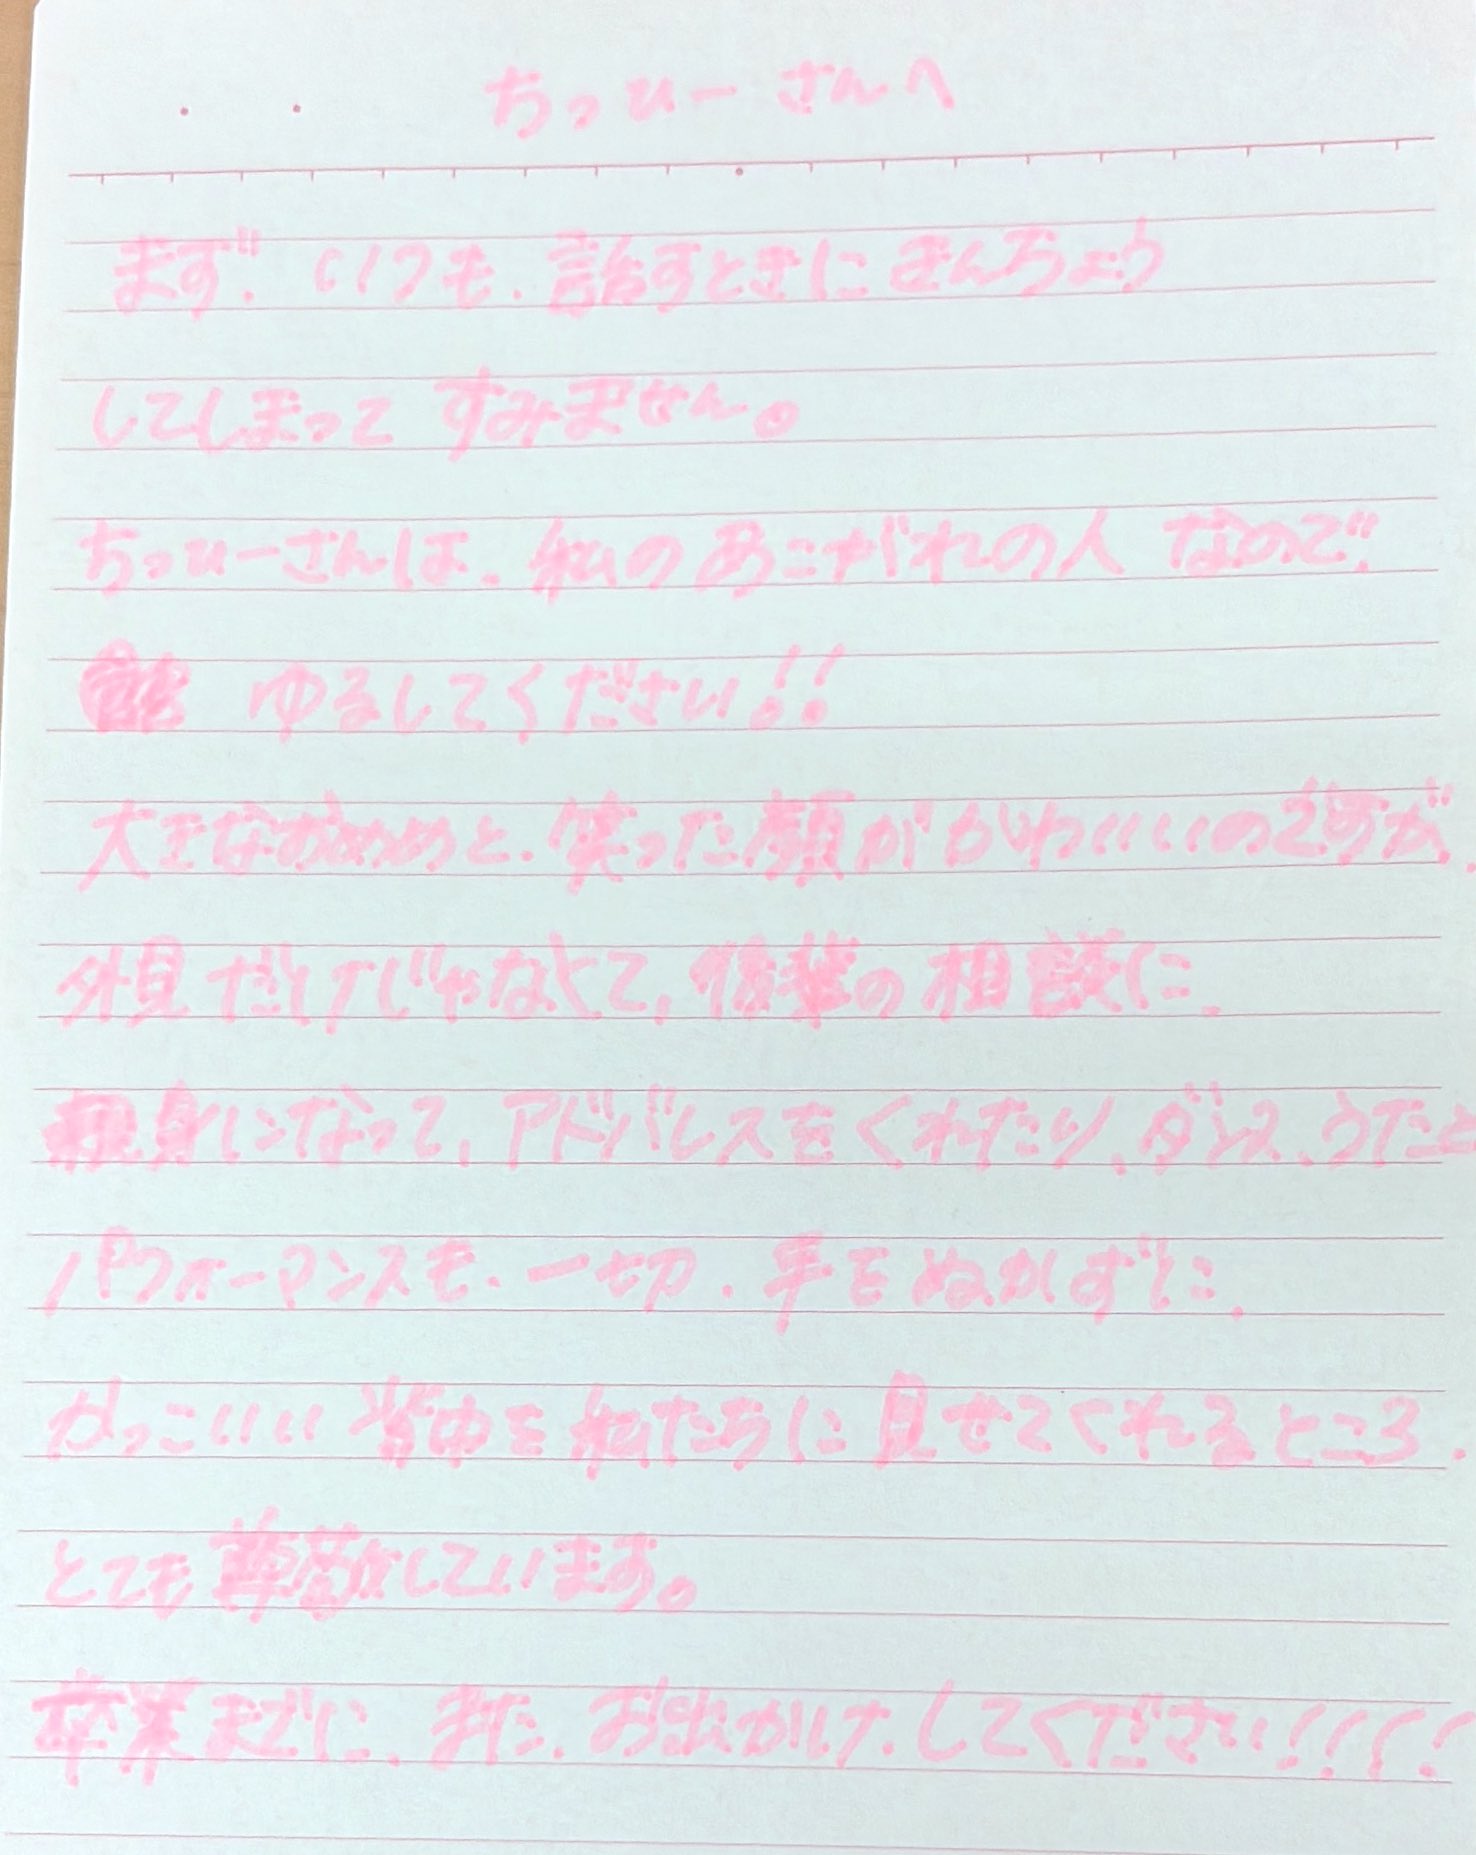 ちっひーさんへ
まず、いつも、話すときにきんちょう
してしまって すみません。
ちっひーさんは、私のあこがれの人 なので、
ゆるしてください!!
大きなおめめと、笑った顔がかわいいいのですが、
外見だけじゃなくて、後輩の相談に、
親身になって、アドバイスをくれたり、ダンス、うたと
パフォーマンスも、一切、手をぬかずに、
かっこいい 背中を 私たちに 見せてくれるところ、
とても尊敬しています。
卒業までに、また、お出かけ、してください!!!!